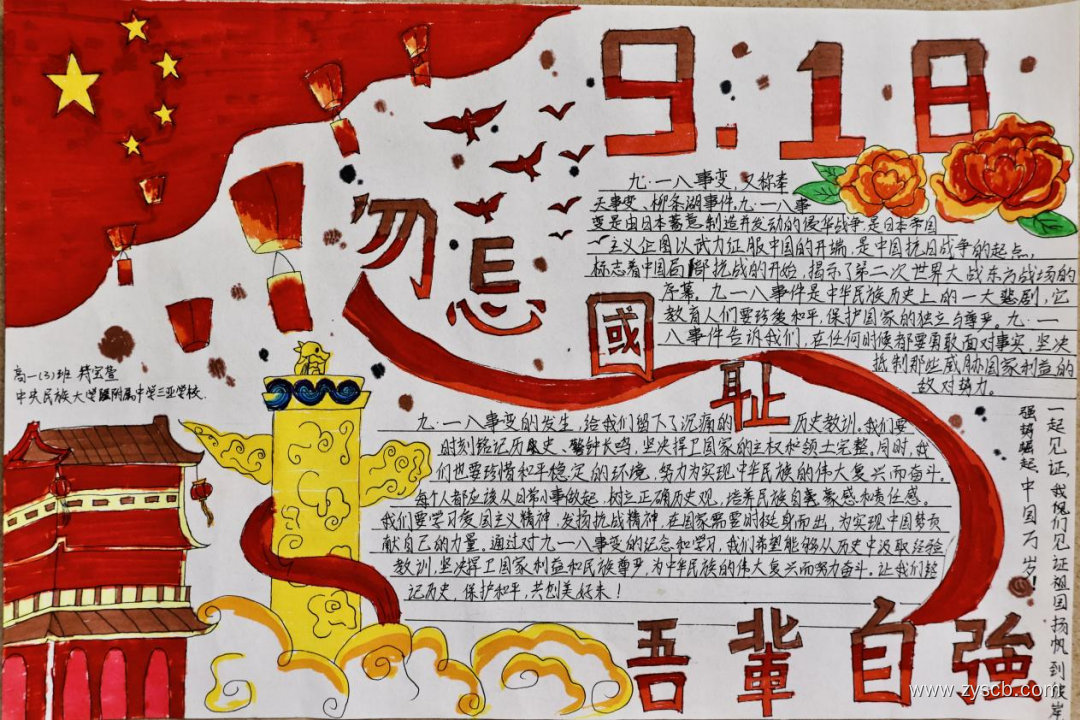 9.18
勿忘
國
耻
九·一八事变,又称奉
天事变、柳条湖事件。九·一八事
变是由日本蓄意制造并发动的侵华战争,是日本帝国
主义企图以武力征服中国的开端,是中国抗日战争的起点,
标志着中国局部抗战的开始,揭示了第二次世界大战东方战场的
序幕。九一八事件是中华民族历史上的一大悲剧,它
教育人们要珍爱和平,保护国家的独立与尊严。九·一
八事件告诉我们,在任何时候都要勇敢面对事实,坚决
抵制那些威胁国家利益的
敌对势力。
高一(3)班
中央民族大学附属中学三亚学校.
九·一八事变的发生,给我们留下了沉痛的历史教训。我们要
时刻铭记历史、警钟长鸣,坚决捍卫国家的主权和领土完整。同时,我
们也要珍惜和平稳定的环境,努力为实现中华民族的伟大复兴而奋斗。
每个人都应该从日常小事做起,树立正确历史观,培养民族自豪感和责任感。
我们要学习爱国主义精神,发扬抗战精神,在国家需要时挺身而出,为实现中国梦贡
献自己的力量。通过对九·一八事变的纪念和学习,我们希望能够从历史中汲取经验
教训,坚决捍卫国家利益和民族尊严,为中华民族的伟大复兴而努力奋斗。让我们铭
记历史,保护和平,共创美好未来!
一起见证,我愧们见证祖国扬帆到彼岸
强势崛起,中国万岁!
吾輩自強
www.zyscb.com